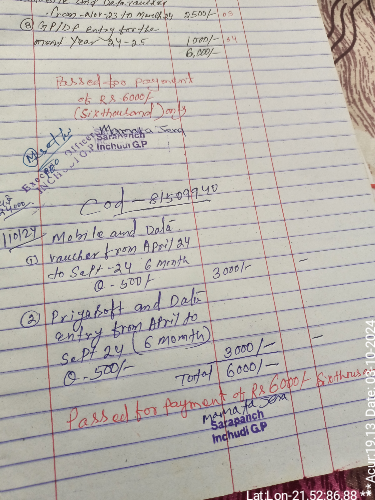 from - Nov-23 to March 24 2500/-
(B) GP/DP entry for the
ment Year 24-25 1000/-
6,000/-
Passed for payment
of Rs 6000/-
(Six thousand) only
Mamata Jena
Sarapanch
Inchudi G.P
Executive Officer
Inchudi G.P
Cod - 81509940
/10/24 Mobile and Data
(1) vaucher from April 24
to Sept - 24 6 month
@ - 500/- 3000/-
(2) Priyasoft and Data
entry from April to
Sept 24 (6 month)
@ - 500/- 3000/-
Total 6000/-
Passed for payment of Rs 6000/- Six thous
Mamata Jena
Sarapanch
Inchudi G.P
Lat:Lon-21.52:86.88 ***Acur:19.13 Date:03.10.2024